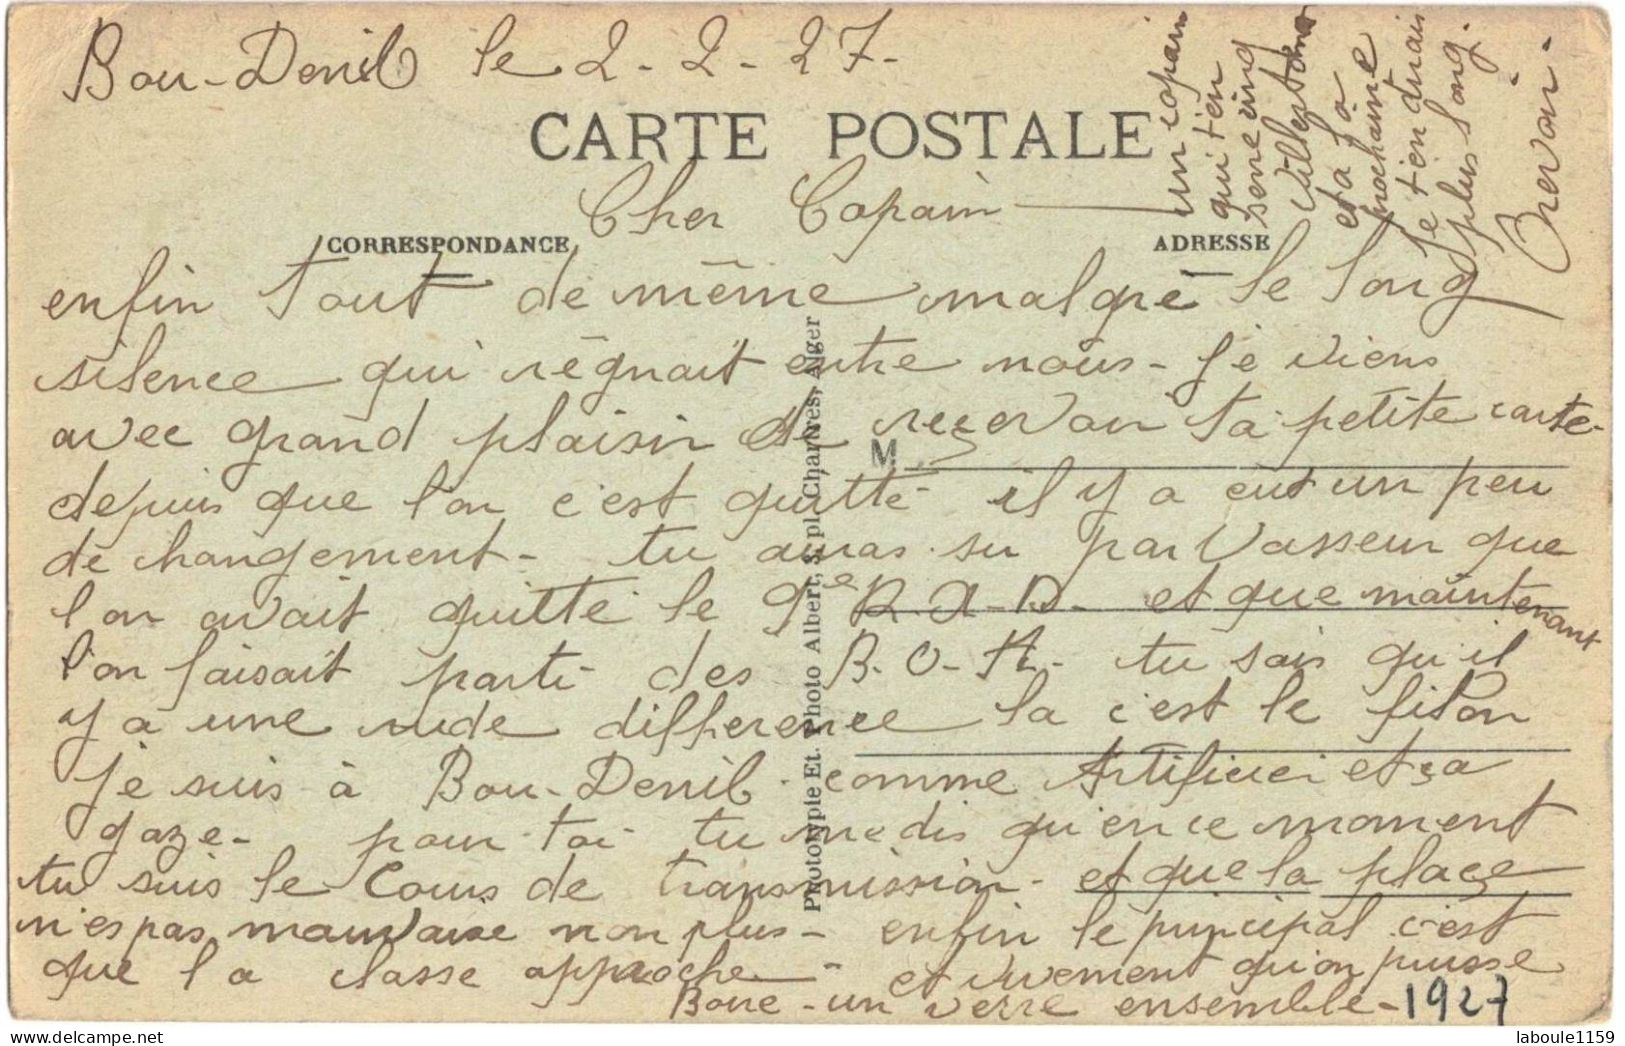 Bou-Denil le 2-2-27-
CARTE POSTALE
Cher Copain
CORRESPONDANCE
ADRESSE
enfin tout de même malgré le long
silence qui règnait entre nous - Je viens
avec grand plaisir de recevoir ta petite carte-
M
depuis que l'on c'est quitté il y a eut un peu
de changement - tu auras su par Vasseur que
l'on avait quitté le 9e R.A.D. et que maintenant
l'on faisait parti des B.O.A. tu sais qu'il
y a une rude difference la c'est le filon
Je suis à Bou-Denil comme Artificier et ça
gaze - pour toi tu me dis qu'en ce moment
tu suis le Cours de transmission - et que la place
n'es pas mauvaise non plus - enfin le principal c'est
que la classe approche - et vivement qu'on puisse
Boire - un verre ensemble - 1927
un copain
qui t'en
serre cinq
et à la
prochaine
Je t'en dirais
plus long.
Phototypie Et. Photo Albert, 8, pl. Chartres, Alger